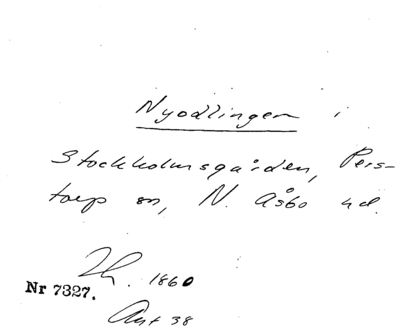 Nyodlingen i
Stockholmsgården, Pers-
torp sn, N. Åsbo hd.
Th. 1860
Nr 7327.
Ant 38